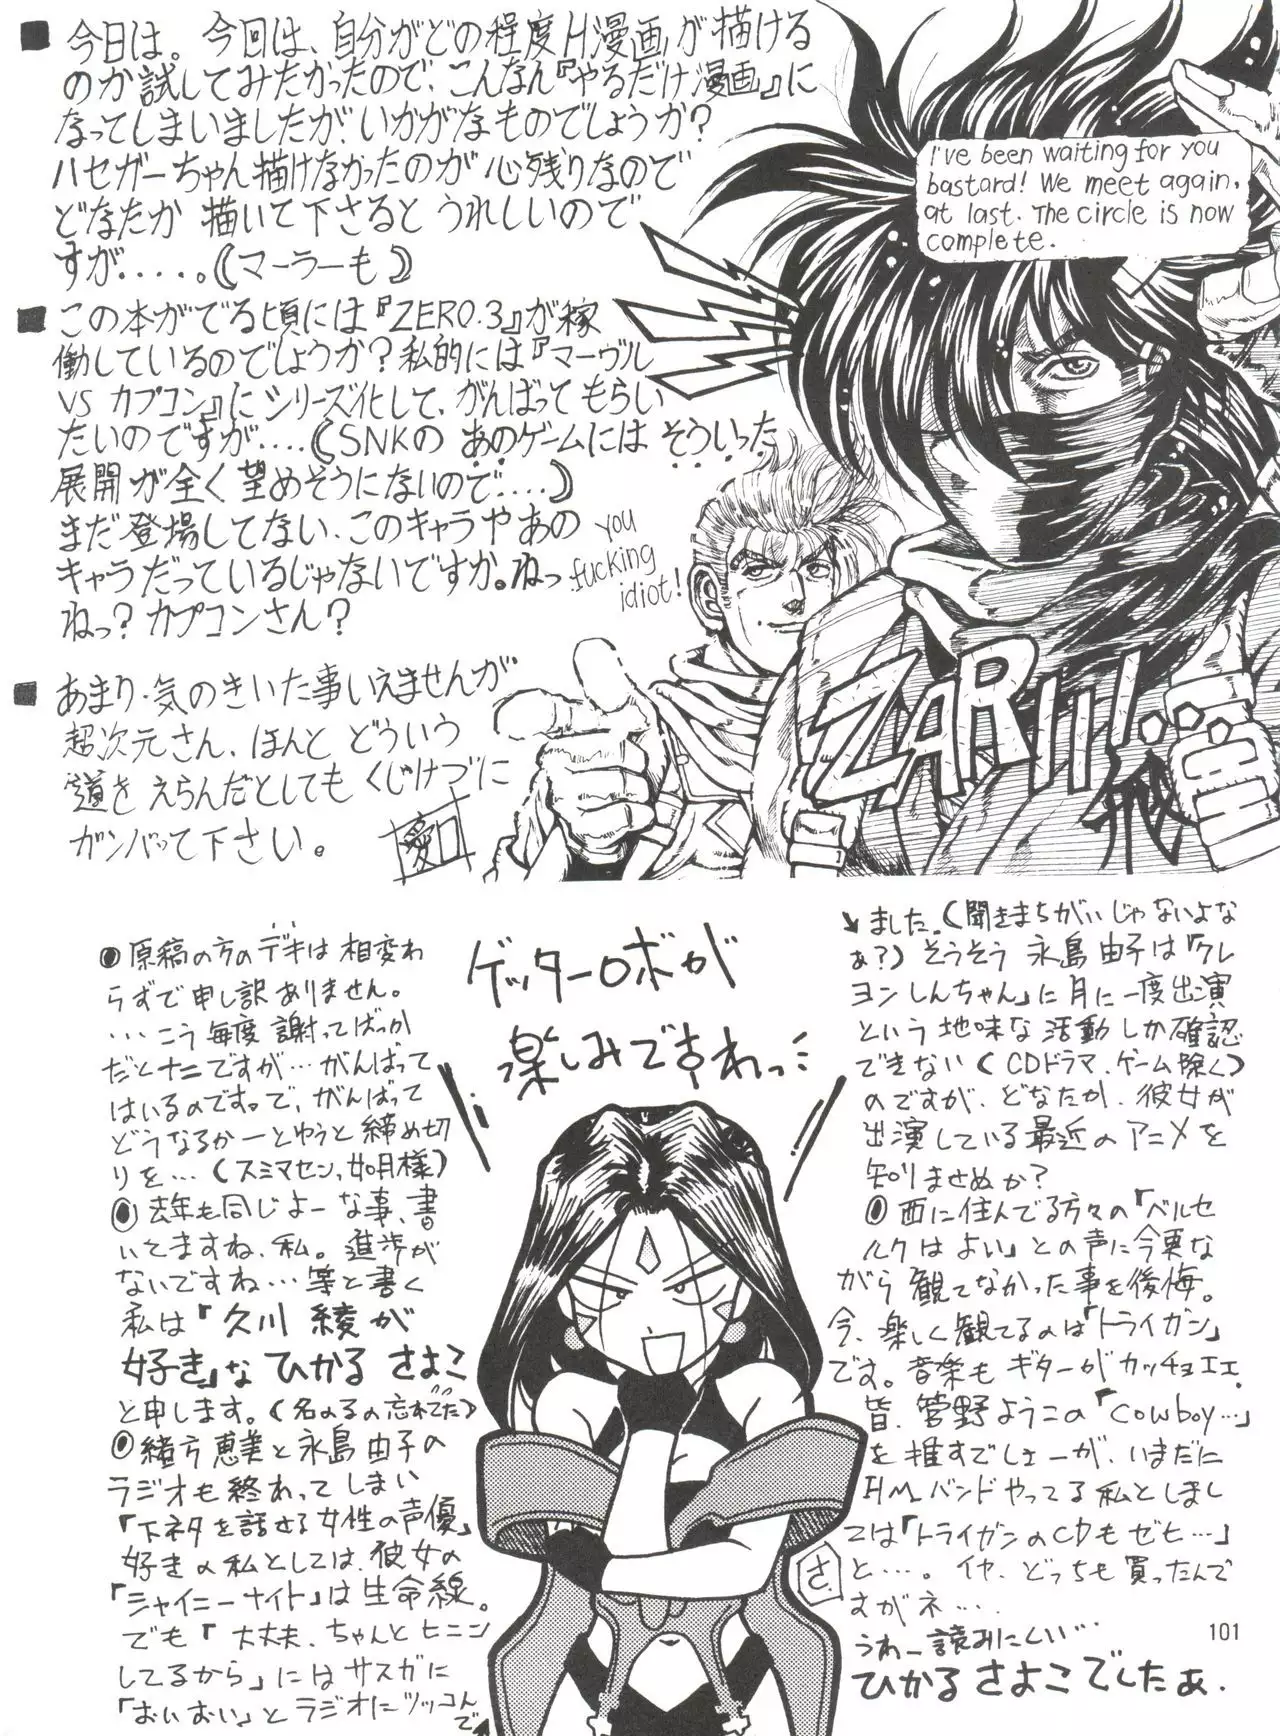 今日は。今回は、自分がどの程度H漫画が描ける
のか試してみたかったので、こんなん『やるだけ漫画』に
なってしまいましたが、いかがなものでしょうか?
ハセガーちゃん描けなかったのが心残りなので
どなたか 描いて下さると うれしいので
すが.....。(マーラーも)
この本がでる頃には『ZERO.3』が稼
働しているのでしょうか?私的には『マーヴル
VS カプコン』にシリーズ化して、がんばってもらい
たいのですが....(SNKの あのゲームには そういった
展開が全く望めそうにないので....)
まだ登場してない、このキャラやあの
キャラだっているじゃないですか。ねっ
ねっ?カプコンさん?
あまり・気のきいた事いえませんが
超次元さん、ほんと どういう
道を えらんだとしても くじけづに
ガンバって下さい。
愛口
I've been waiting for you
bastard! We meet again,
at last. The circle is now
complete.
you
fucking
idiot!
ZARIII!
ゲッターロボが
楽しみですわっ
原稿の方のデキは相変わ
らずで申し訳ありません。
…こう毎度謝ってばっか
だとナニですが…がんばって
はいるのです。で、がんばって
どうなるかーとゆうと締め切
りを…(スミマセン,如月様)
去年も同じよーな事、書
いてますね、私。進歩が
ないですね…等と書く
私は「久川 綾が
好き」な ひかる さよこ
と申します。(名のるの忘れてた)
緒方恵美と永島由子の
ラジオも終わってしまい
「下ネタを話せる女性の声優」
好きの私としては、彼女の
「シャイニーナイト」は生命線。
でも「大丈夫、ちゃんとヒニン
してるから」にはサスガに
「おいおい」とラジオにツッコんで
ました。(聞きまちがいじゃないよな
ぁ?)そうそう 永島 由子は「クレ
ヨンしんちゃん」に月に一度出演
という地味な活動しか確認
できない(CDドラマ、ゲーム除く)
のですが、どなたか、彼女が
出演している最近のアニメを
知りませぬか?
西に住んでる方々の「ベルセ
ルクはよい」との声に今更な
がら観てなかった事を後悔。
今、楽しく観てるのは「トライガン」
です。音楽もギターがカッチョエエ。
皆、菅野ようこの「cowboy…」
を推すでしょーが、いまだに
HMバンドやってる私としまし
ては「トライガンのCDもゼヒ…」
と…。イヤ、どっちも買ったんで
すがネ…。
うわー読みにくい…
ひかる さよこでしたぁ.
さ
101